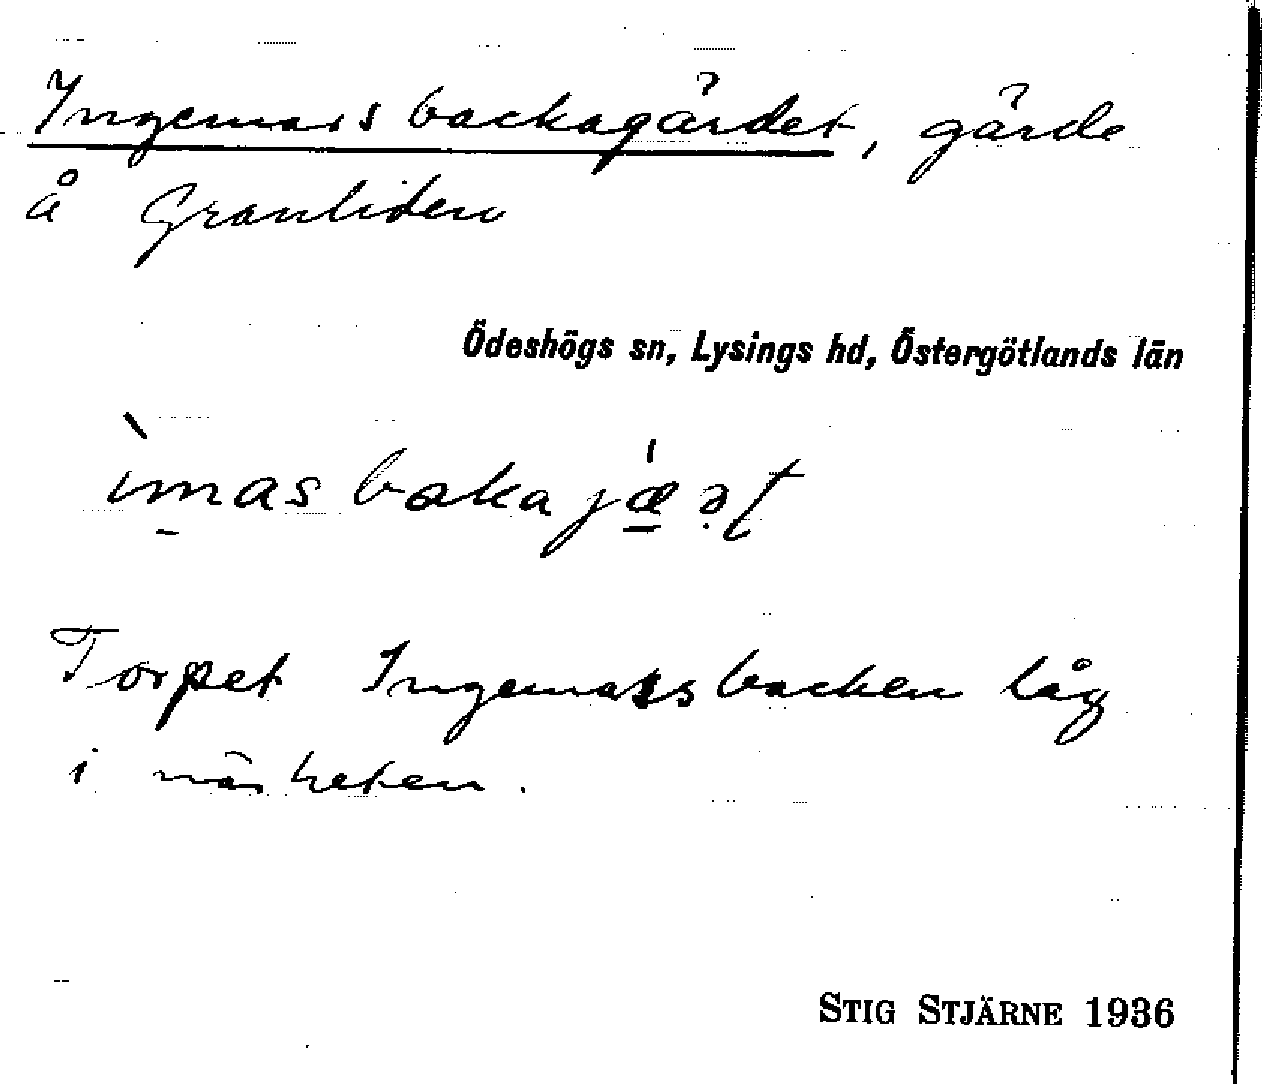 Ingemarsbackagärdet, gärde
å Granliden
Ödeshögs sn, Lysings hd, Östergötlands län
Torpet Ingemarsbacken låg
i närheten.
STIG STJÄRNE 1936